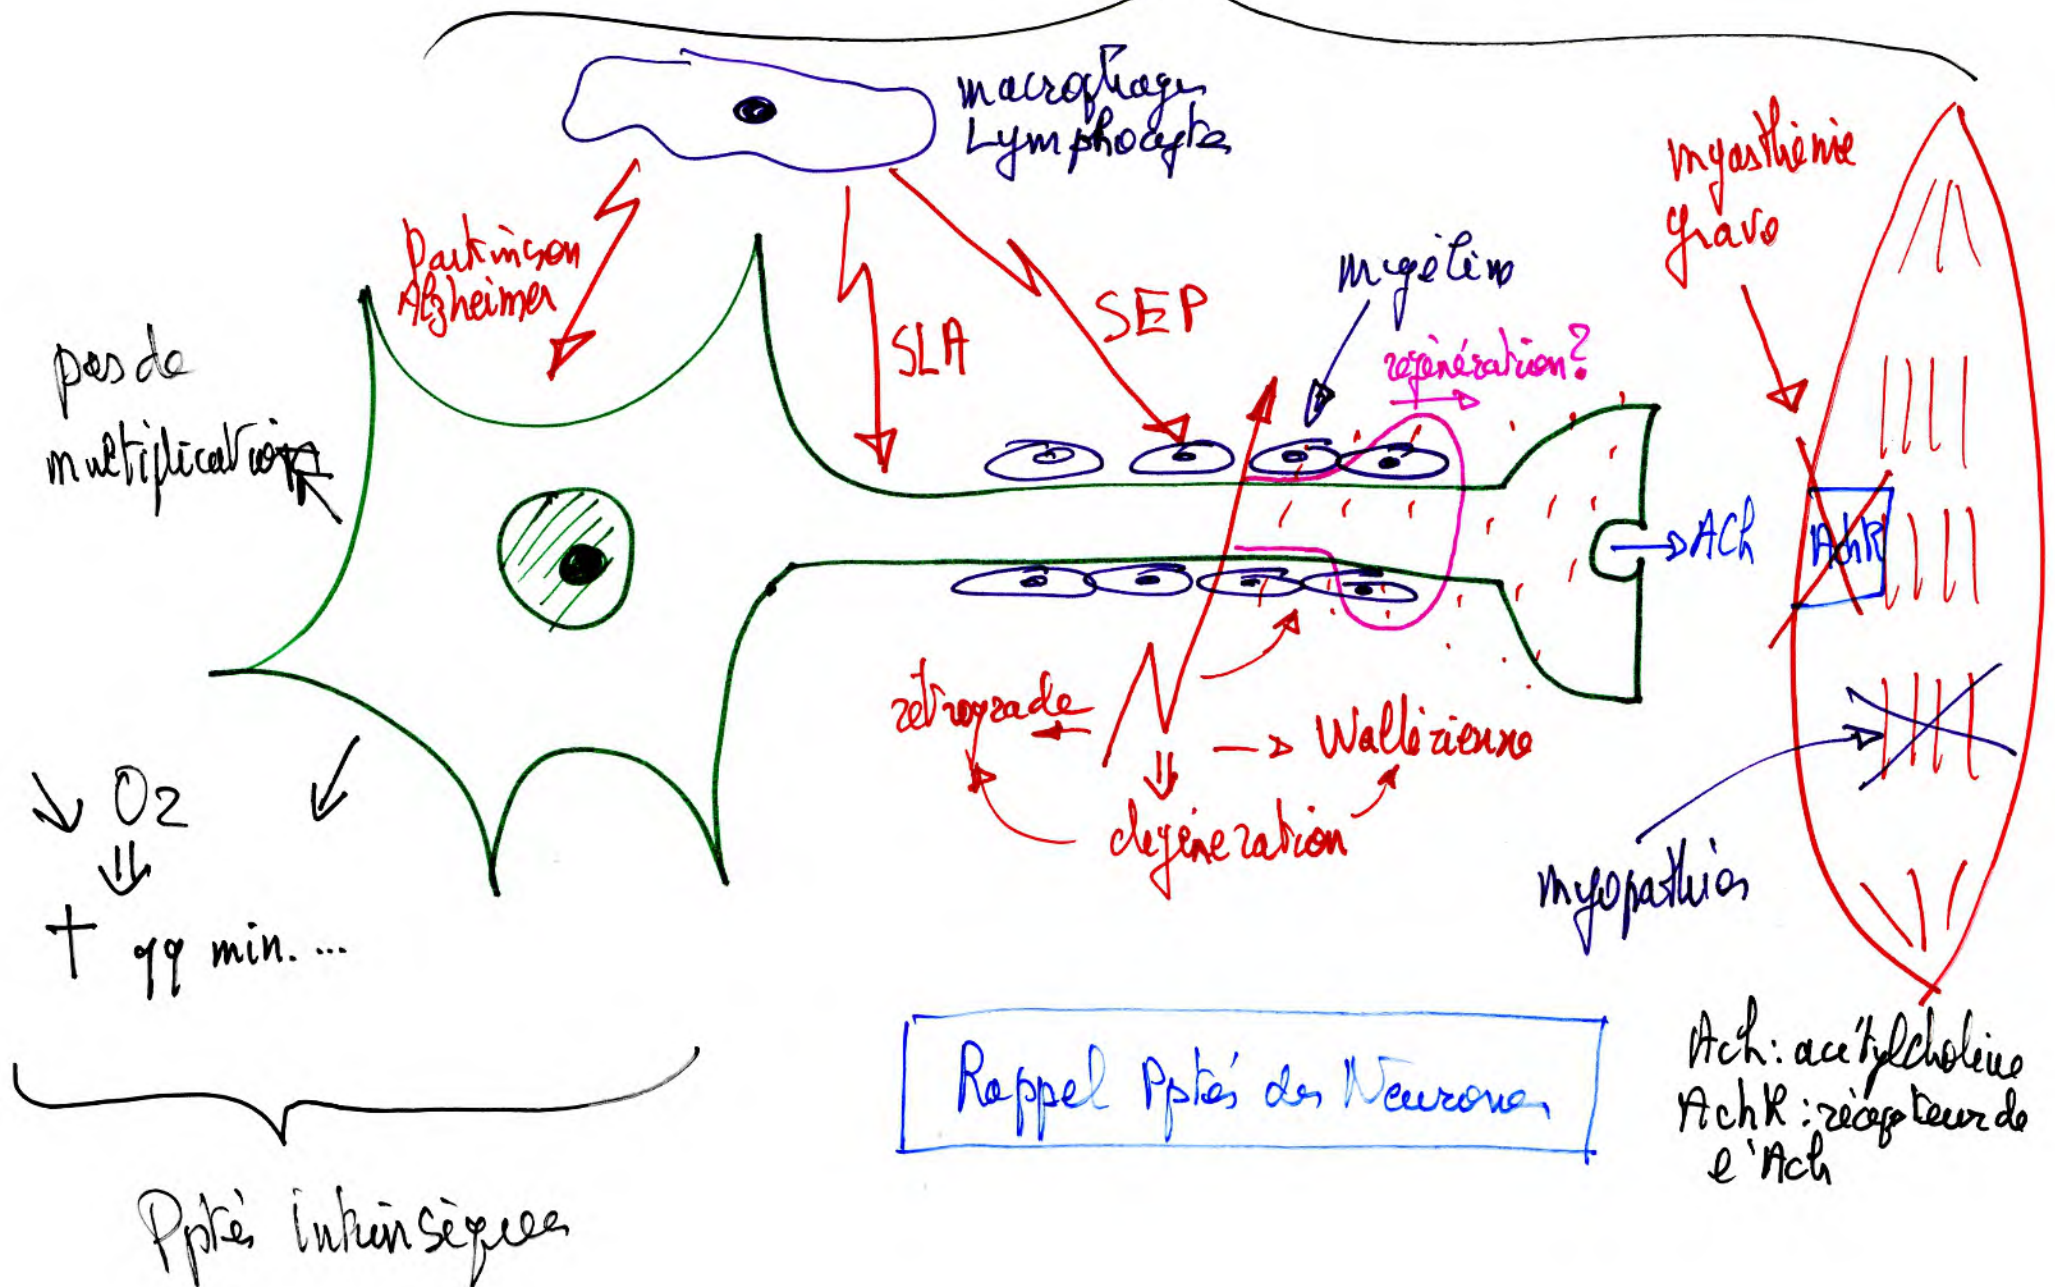 macrophages
Lymphocytes
myasthénie
grave
Parkinson
Alzheimer
SLA
SEP
myéline
régénération?
pas de
multiplication
ACh
AchR
rétrograde
Wallérienne
dégéneration
O2
qq min. ...
myopathies
Rappel Pptés des Neurones
Ach: acétylcholine
AchR: récepteur de
l'Ach
Pptés intrinsèques